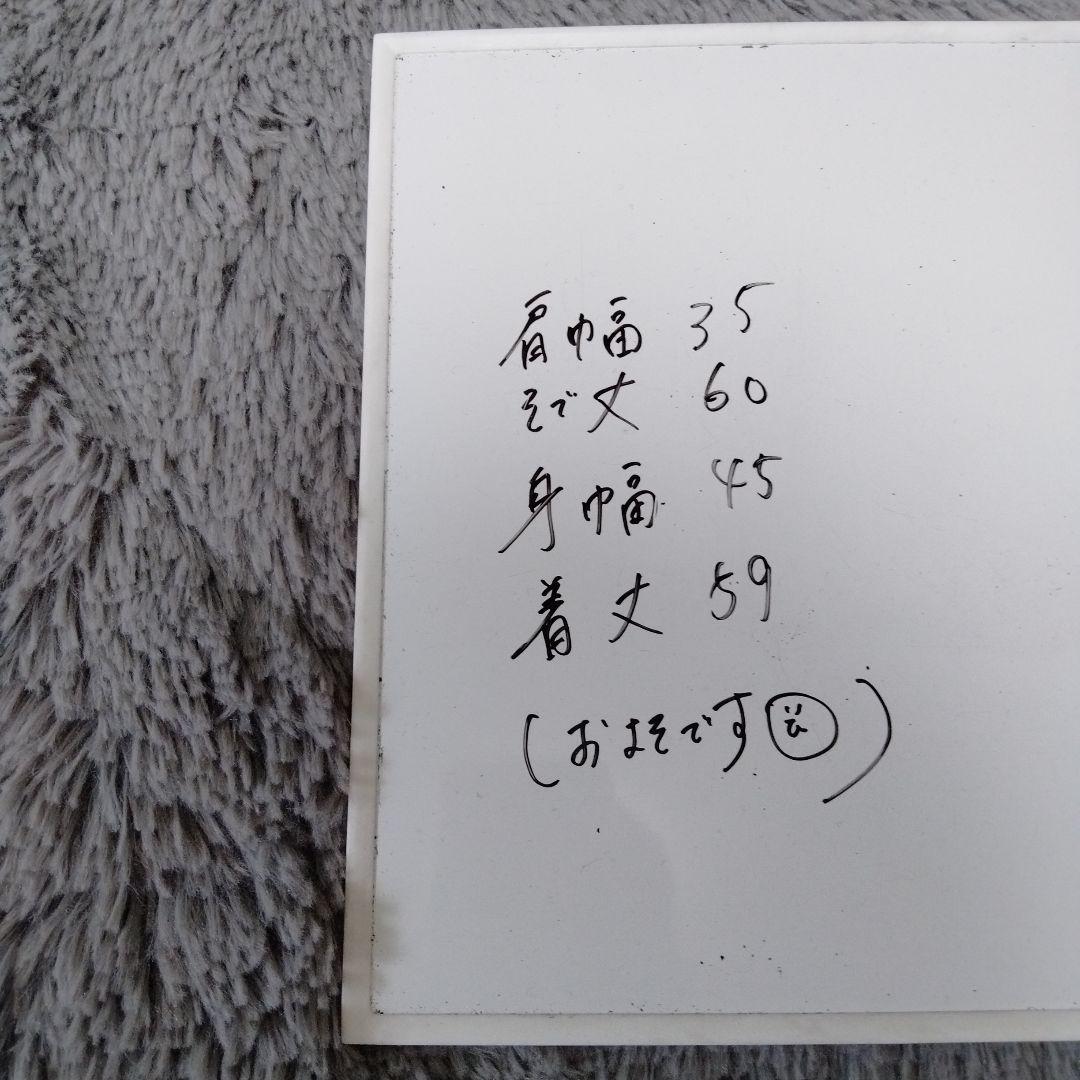 肩幅 35
そで丈 60
身幅 45
着丈 59
(およそです)